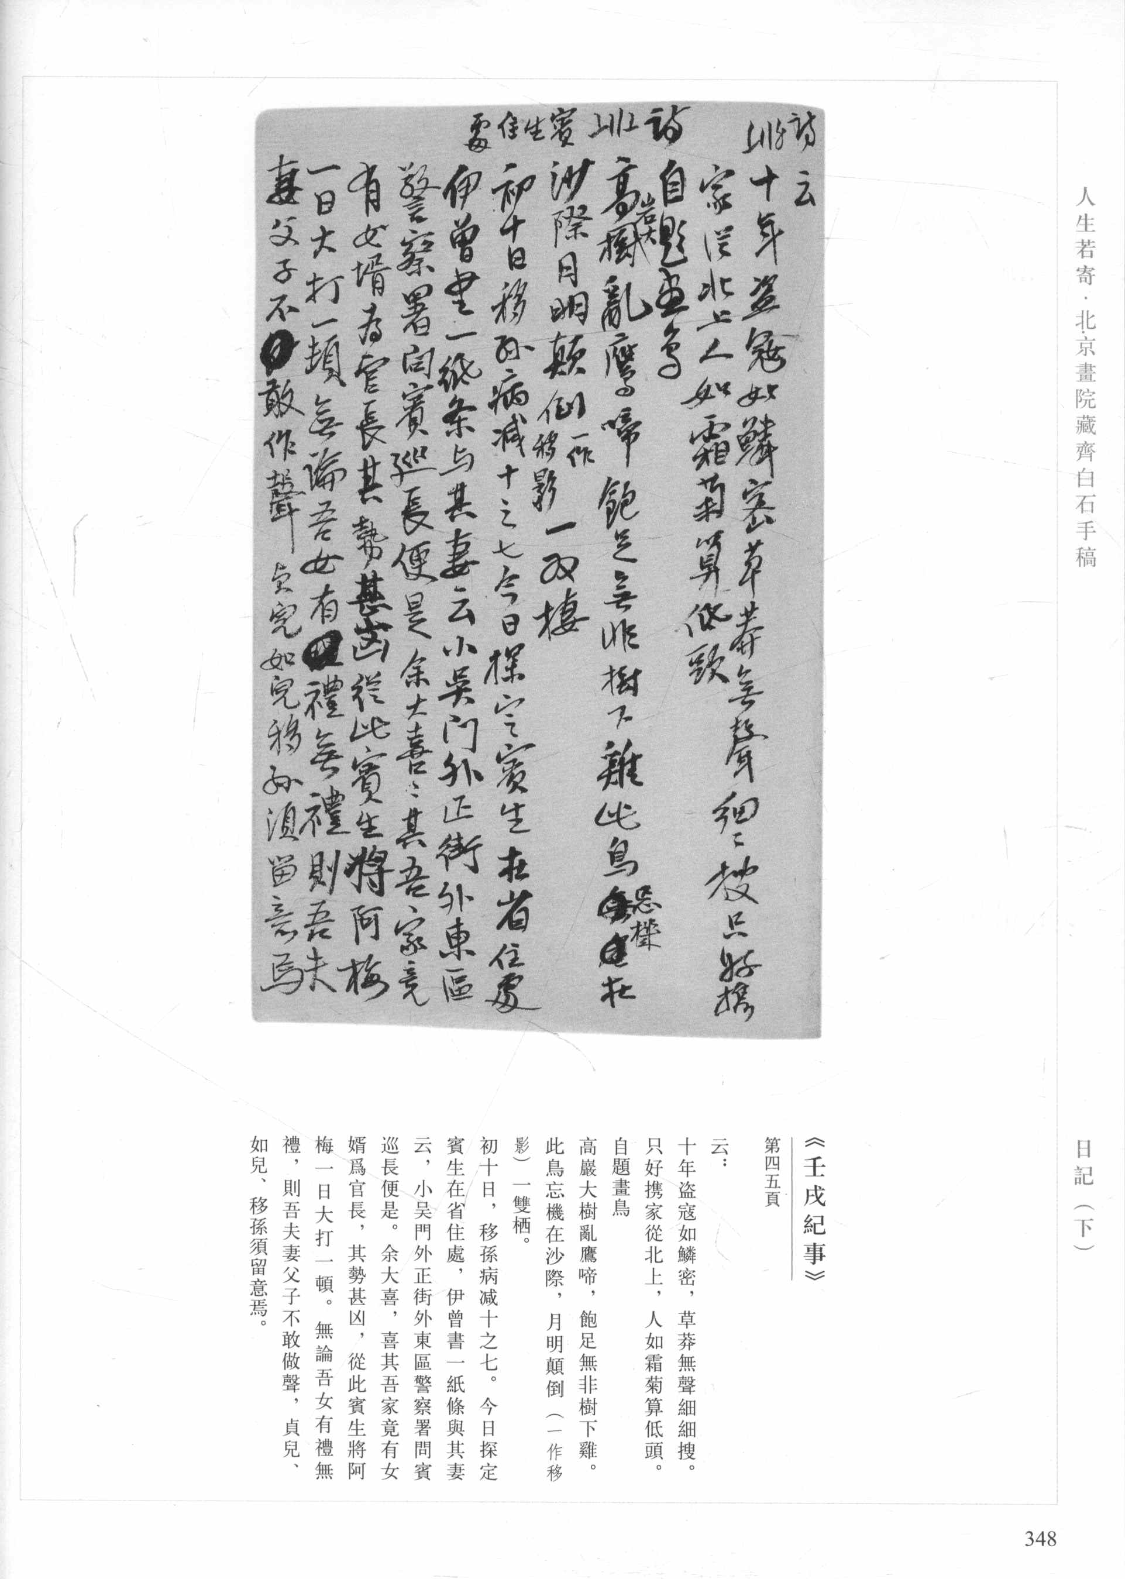 人生若寄·北京畫院藏齊白石手稿
日記（下）
詩
云
十年盗寇如鱗密草莽無聲細〻搜只好携
家從北上人如霜菊算低頭
詩
自題畫鳥
高巖大樹亂鷹啼飽足無非樹下雞此鳥忘機在
沙際月明顛倒一作移影一双棲
賓生住處
初十日移孫病减十之七今日探定賓生在省住處
伊曾書一紙条与其妻云小吳門外正街外東區
警察署問賓巡長便是余大喜〻其吾家竟
有女壻為官長其勢甚凶從此賓生將阿梅
一日大打一頓無論吾女有禮無禮則吾夫
妻父子不敢作聲貞兒如兒移孫須留意焉
《壬戌紀事》
第四五頁
云：
十年盗寇如鱗密，草莽無聲細細搜。
只好携家從北上，人如霜菊算低頭。
自題畫鳥
高巖大樹亂鷹啼，飽足無非樹下雞。
此鳥忘機在沙際，月明顛倒（一作移
影）一雙栖。
初十日，移孫病减十之七。今日探定
賓生在省住處，伊曾書一紙條與其妻
云，小吴門外正街外東區警察署問賓
巡長便是。余大喜，喜其吾家竟有女
婿爲官長，其勢甚凶，從此賓生將阿
梅一日大打一頓。無論吾女有禮無
禮，則吾夫妻父子不敢做聲，貞兒、
如兒、移孫須留意焉。
348